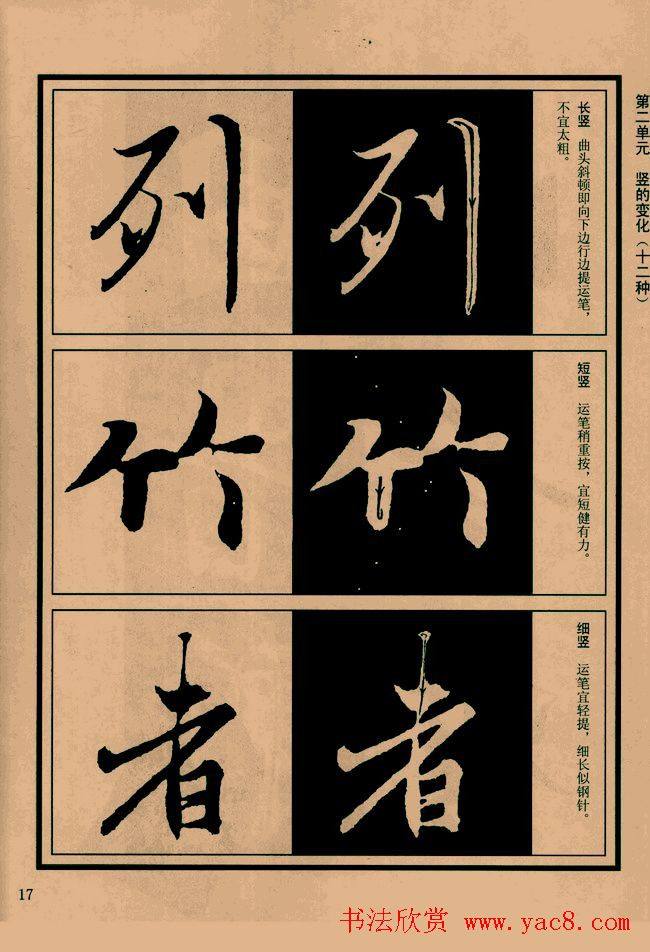 第二单元 竖的变化（十二种）
列 列
长竖 曲头斜顿即向下边行边提运笔，
不宜太粗。
竹 竹
短竖 运笔稍重按，宜短健有力。
者 者
细竖 运笔宜轻提，细长似钢针。
17
书法欣赏 www.yac8.com